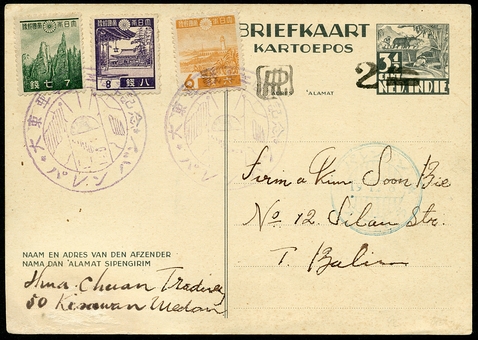 便郵國帝本日大
錢七
7
便郵國帝本日大
錢八
8
便郵國帝本日大
6
BRIEFKAART
KARTOEPOS
ADRES 'ALAMAT
3½
CENT
NED.INDIE
大東亞
記念
Firma Kim Soon Bie
No 12 Silau Str.
T. Balei
NAAM EN ADRES VAN DEN AFZENDER
NAMA DAN 'ALAMAT SIPENGIRIM
Hwa Chuan Trading
50 Kesawan Medan